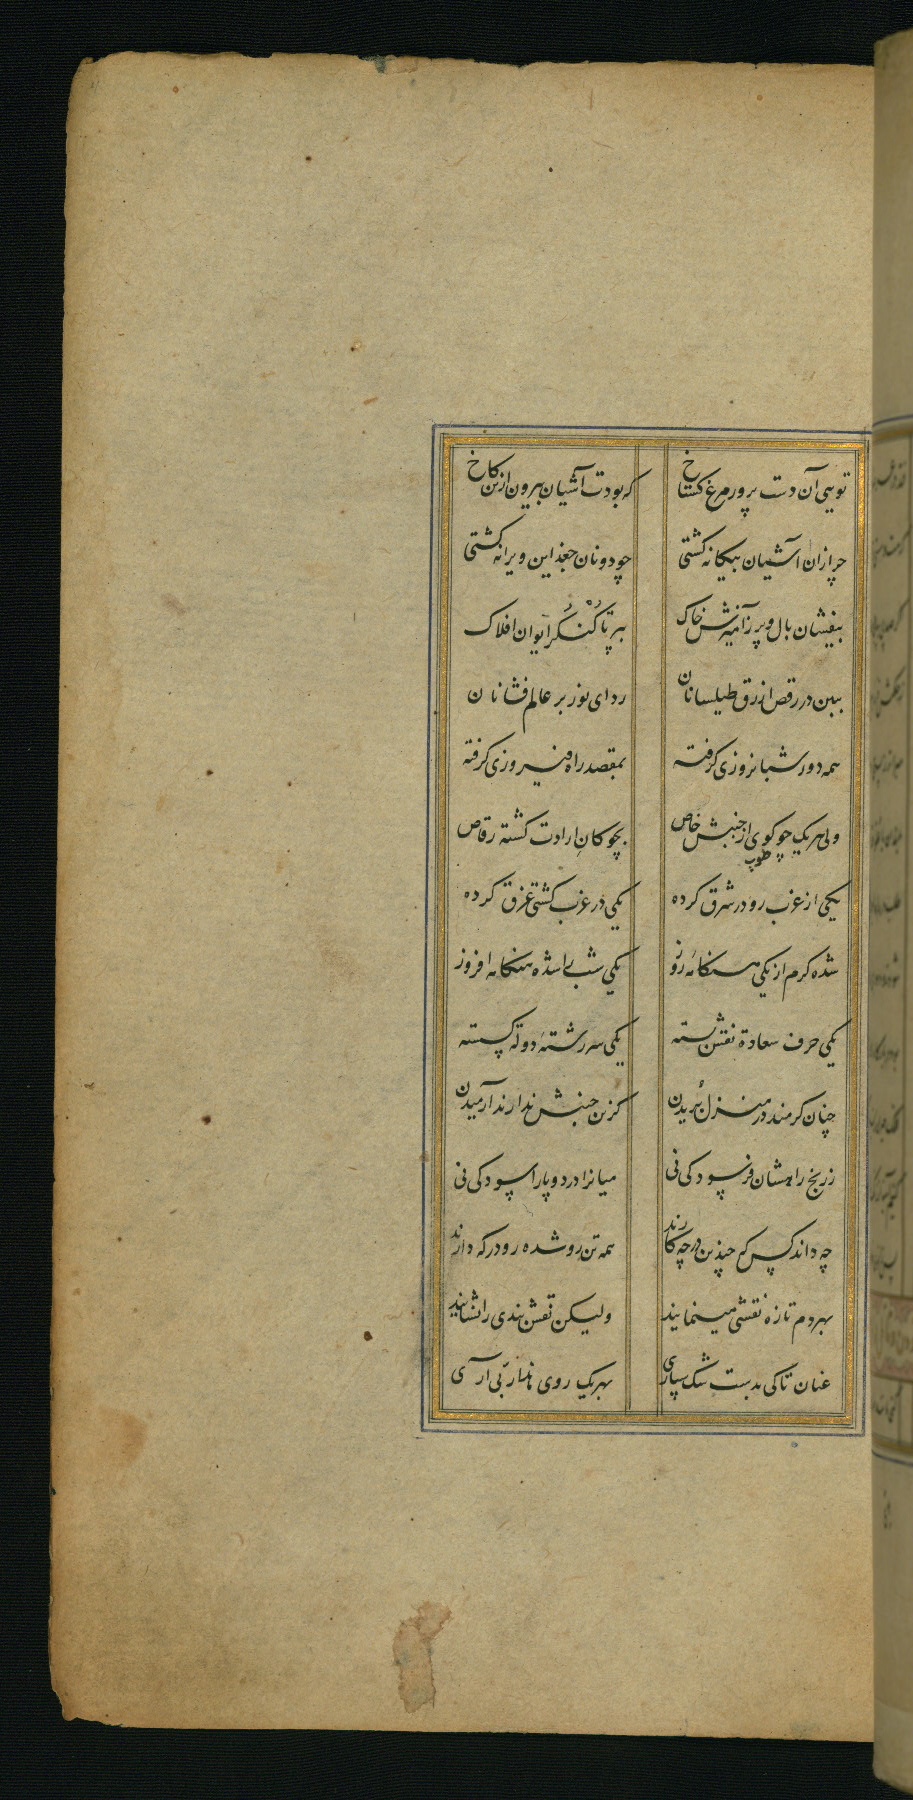 تویی آن دست پرور مرغ گستاخ که بودت آشیان بیرون ازین کاخ
چرا زان آشیان بیکانه کشتی چو دونان جغد این ویرانه کشتی
بیفشان بال و پر زآمیزش خاک بپر تا کنگر ایوان افلاک
ببین در رقص ازرق طیلسانان ردای نور بر عالم فشانان
همه دور شبانروزی کرفته بمقصد راه فیروزی کرفته
ولی هریک چو کوی از جنبش خاص بچوکان ارادت کشته رقاص
طوپ
یکی از غرب رو در شرق کرده یکی در غرب کشتی غرق کرده
شده کرم از یکی هنکامهٔ روز یکی شب را شده هنکامه افروز
یکی حرف سعادة نقش بسته یکی سررشتهٔ دولة کسسته
چنان کرمند در منزل بریدن کزین جنبش ندارند آرمیدن
ز رنج راهشان فرسودکی نی میانرا درد و پارا سودکی نی
چه داند کس که چندین در چه کارند همه تن رو شده رو در که دارند
بهر دم تازه نقشی مینمایند ولیکن نقش بندی را نشایند
عنان تاکی بدست شک سپاری بهریک روی هذا ربی آری